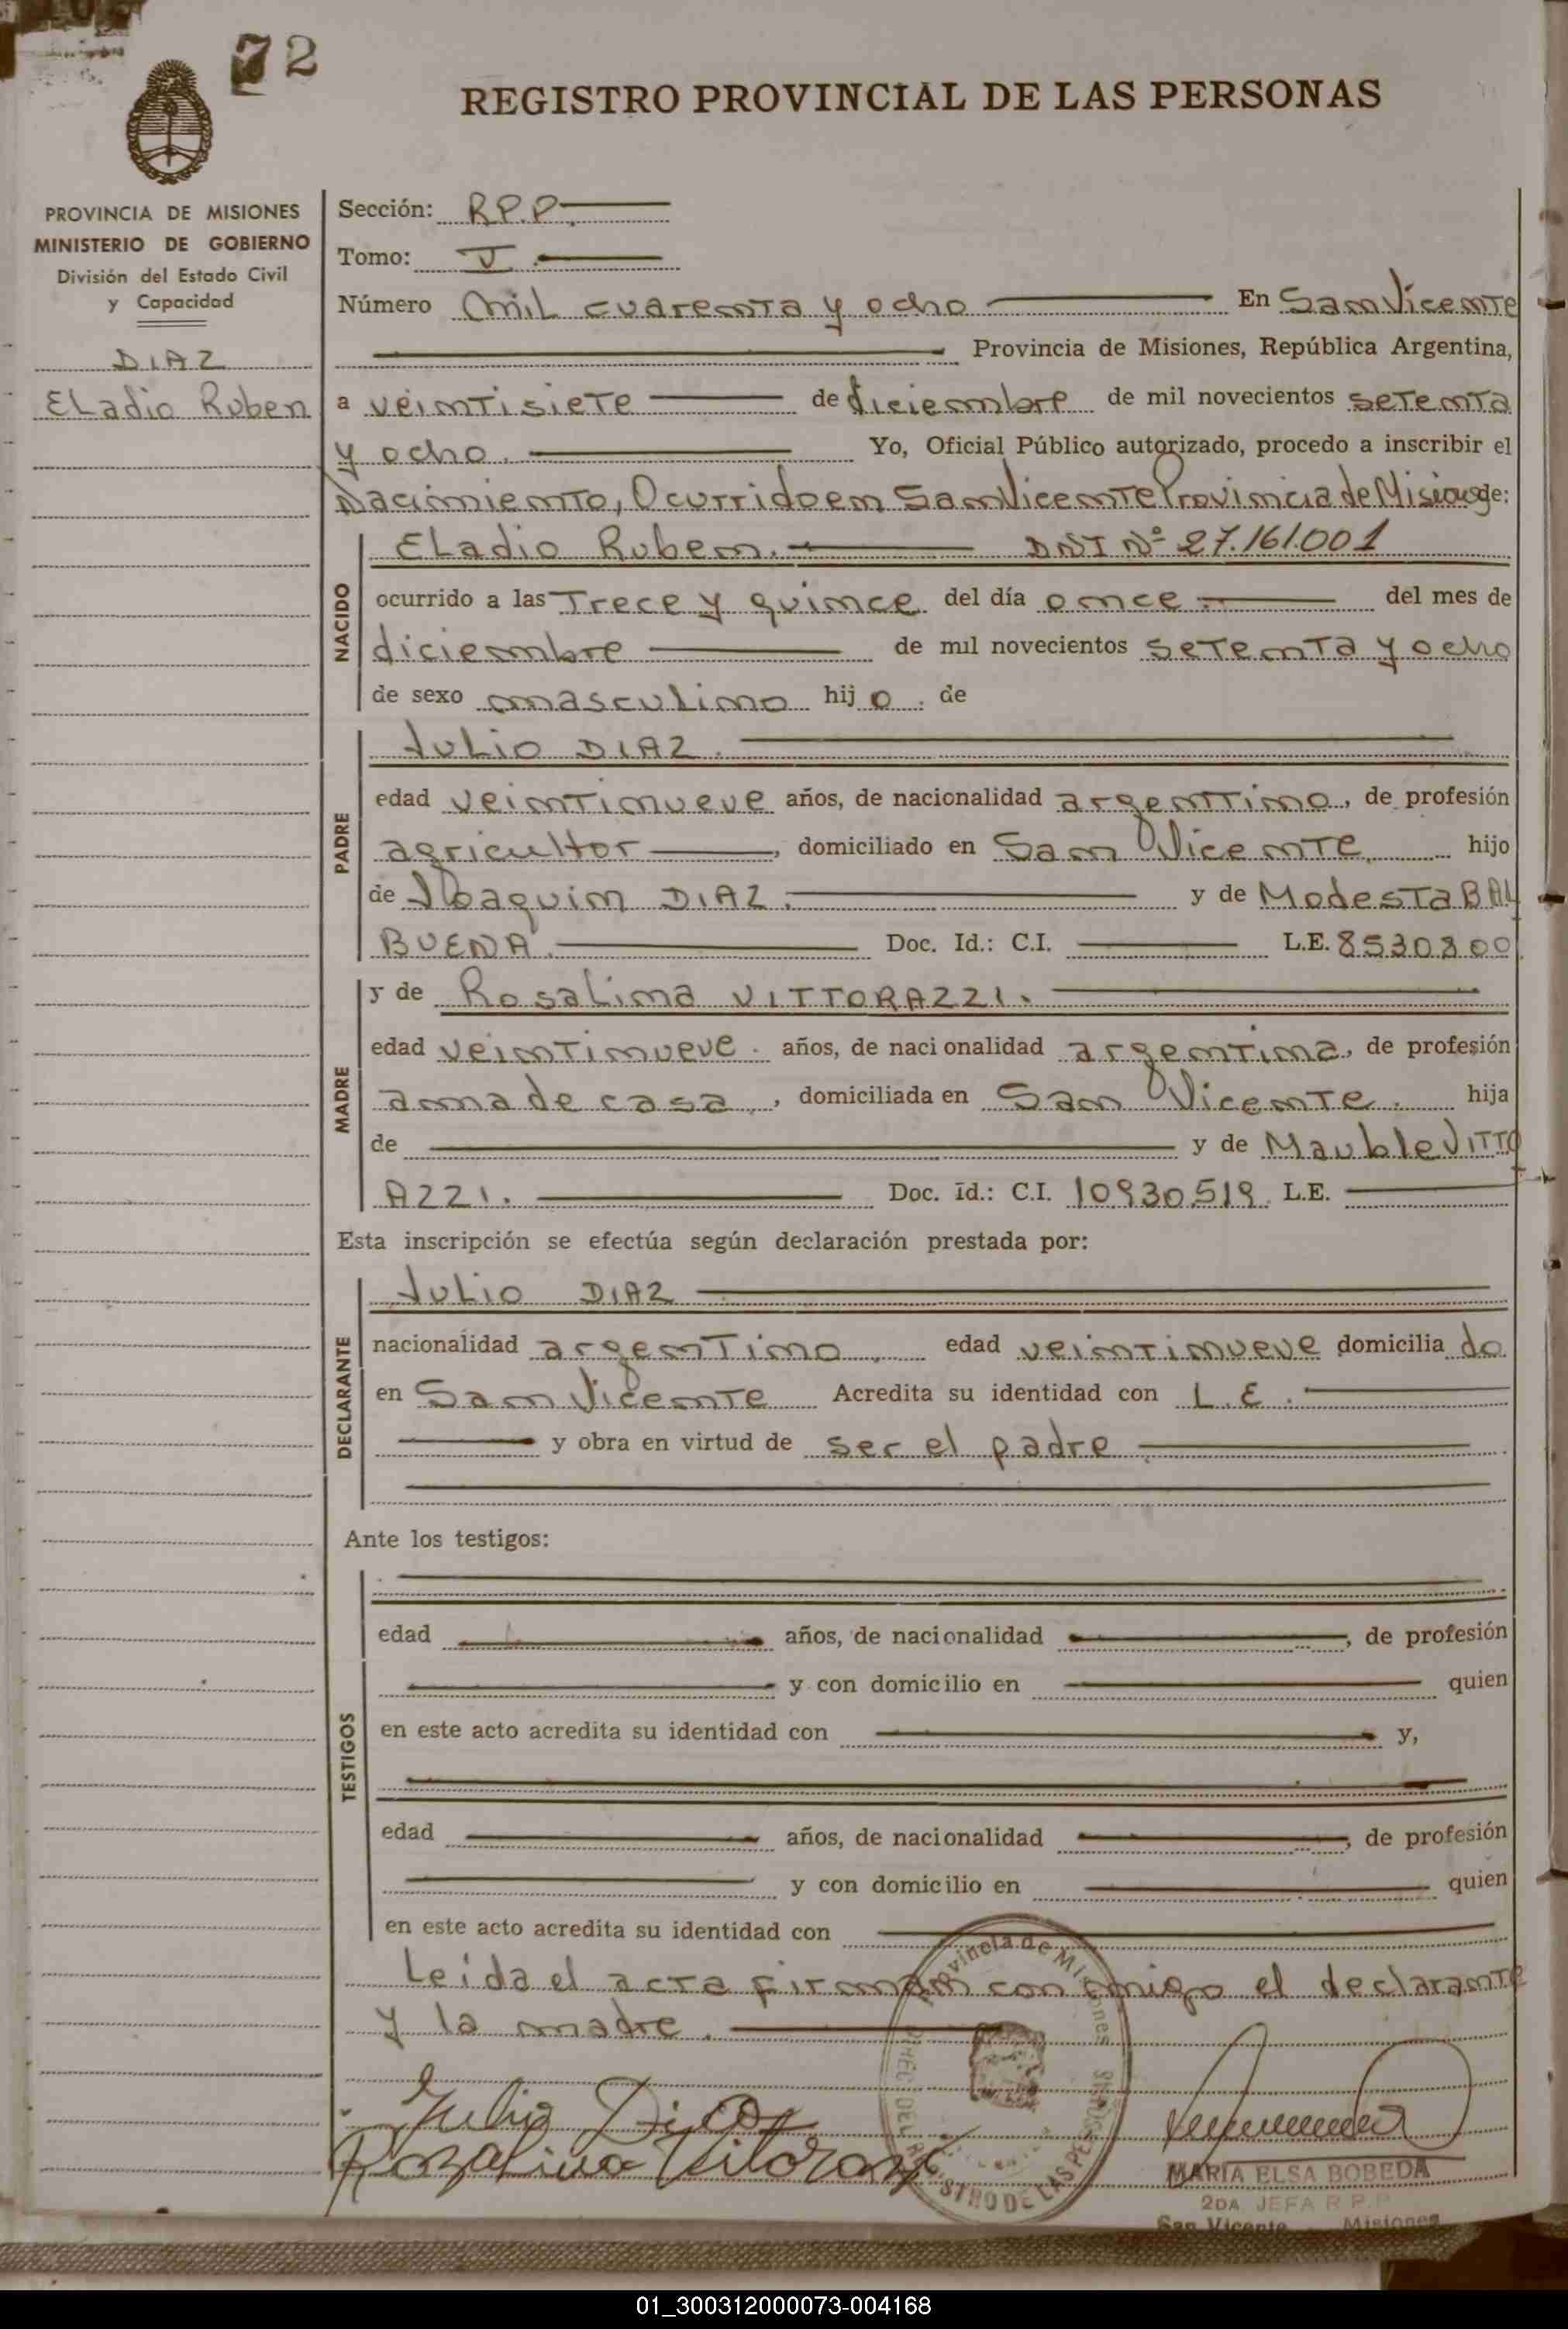 72
REGISTRO PROVINCIAL DE LAS PERSONAS
PROVINCIA DE MISIONES
MINISTERIO DE GOBIERNO
División del Estado Civil
y Capacidad
DIAZ
Eladio Ruben
Sección: R.P.P.
Tomo: V
Número mil cuarenta y ocho En San Vicente
Provincia de Misiones, República Argentina,
a veintisiete de diciembre de mil novecientos setenta
y ocho. Yo, Oficial Público autorizado, procedo a inscribir el
Nacimiento, Ocurrido en San Vicente Provincia de Misiones de:
NACIDO
Eladio Ruben. DNI Nº 27.161.001
ocurrido a las Trece y quince del día once del mes de
diciembre de mil novecientos setenta y ocho
de sexo masculino hijo. de
PADRE
Julio DIAZ.
edad veintinueve años, de nacionalidad argentino, de profesión
agricultor, domiciliado en San Vicente hijo
de Joaquin DIAZ. y de Modesta BAL
BUENA. Doc. Id.: C.I. L.E. 8530300
MADRE
y de Rosalina VITTORAZZI.
edad veintinueve. años, de nacionalidad argentina, de profesión
ama de casa, domiciliada en San Vicente. hija
de y de Mauble VITTO
AZZI. Doc. Id.: C.I. 10930519 L.E.
Esta inscripción se efectúa según declaración prestada por:
DECLARANTE
Julio DIAZ
nacionalidad argentino, edad veintinueve domiciliado
en San Vicente Acredita su identidad con L.E.
y obra en virtud de ser el padre
Ante los testigos:
TESTIGOS
edad años, de nacionalidad, de profesión
y con domicilio en quien
en este acto acredita su identidad con y,
edad años, de nacionalidad, de profesión
y con domicilio en quien
en este acto acredita su identidad con
Leída el acta firman conmigo el declarante
y la madre.
Provincia de Misiones
REGISTRO DE LAS PERSONAS
Julio Diaz
Rozalina Vitorazi
MARIA ELSA BOBEDA
2DA JEFA R.P.P
San Vicente - Misiones
01_300312000073-004168